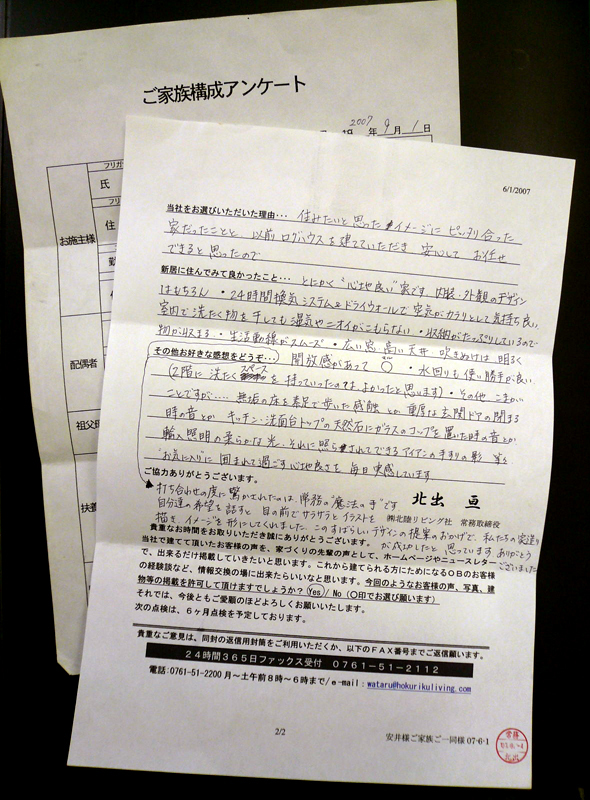 ご家族構成アンケート
2007年9月1日
フリガ
氏
フリ
お施主様
住
勤
配偶者
祖父母
扶養
6/1/2007
当社をお選びいただいた理由… 住みたいと思ったイメージにピッタリ合った
家だったことと、以前ログハウスを建てていただき 安心して お任せ
できると思ったので
新居に住んでみて良かったこと… とにかく"心地良い"家です 内装・外観のデザイン
はもちろん ・24時間換気システム&ドライウォールで空気がカラリとして気持ち良い
室内で洗たく物を干しても湿気やニオイがこもらない ・収納がたっぷりしているので
物が収まる ・生活動線がスムーズ ・広い窓 高い天井 吹きぬけは 明るく
その他お好きな感想をどうぞ… 開放感があって ○ ・水回りも使い勝手が良い
(2階に洗たくスペースを持っていったのは よかったと思います) ・その他 こまかい
ことですが…… 無垢の床を素足で歩いた感触 とか 重厚な玄関ドアの閉まる
時の音とか キッチン・洗面台トップの天然石にガラスのコップを置いた時の音とか
輸入照明の柔らかな光、それに照らされてできるアイアンの手すりの影 等々
"お気に入り"に囲まれて過ごす心地良さを 毎日実感しています
ご協力ありがとうございます。
打ち合わせの度に驚かされたのは、常務の"魔法の手"です
北出 亘
自分達の希望を話すと 目の前でサラサラとイラストを
㈱北陸リビング社 常務取締役
描き イメージを形にしてくれました。このすばらしいデザインの提案のおかげで、私たちの家造り
が成功したと 思っています ありがとう
ございました
貴重なお時間をお取りいただき誠にありがとうございます。
当社で建てて頂いたお客様の声を、家づくりの先輩の声として、ホームページやニュースレター
で、出来るだけ掲載していきたいと思います。これから建てられる方にためになるOBのお客様
の経験談など、情報交換の場に出来たらいいなと思います。今回のようなお客様の声、写真、建
物等の掲載を許可して頂けますでしょうか?(Yes)/ No (○印でお選び願います)
それでは、今後ともご愛顧のほどよろしくお願いいたします。
次の点検は、6ヶ月点検を予定しております。
貴重なご意見は、同封の返信用封筒をご利用いただくか、以下のFAX番号までご返信願います。
24時間365日ファックス受付 0761-51-2112
電話:0761-51-2200 月~土午前8時~6時まで/e-mail:wataru@hokurikuliving.com
2/2
安井様ご家族ご一同様 07-6-1
常務
北出